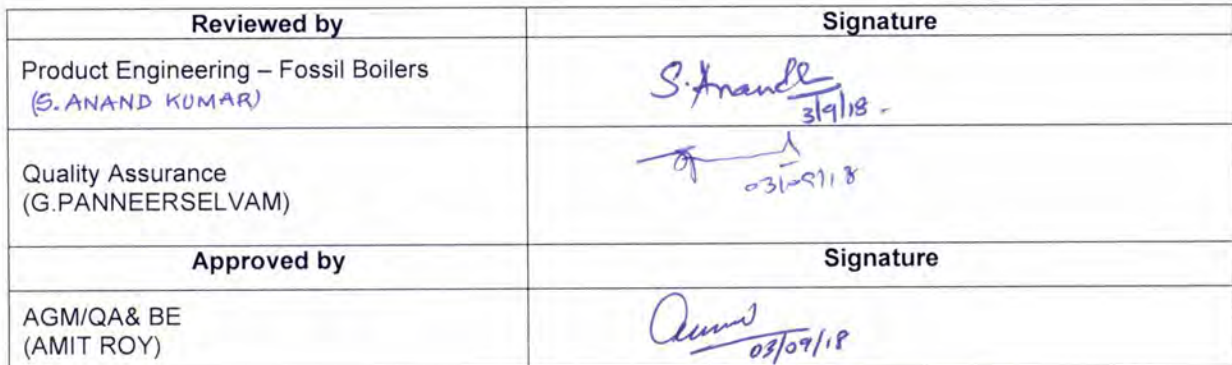 Reviewed by Signature
Product Engineering – Fossil Boilers
(S. ANAND KUMAR)
S. Anand
3/9/18.
Quality Assurance
(G.PANNEERSELVAM)
03/09/18
Approved by Signature
AGM/QA& BE
(AMIT ROY)
03/09/18